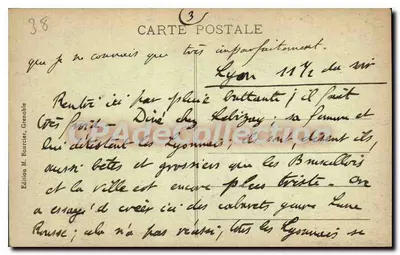 38
3
CARTE POSTALE
que je ne connais que très imparfaitement.
Lyon 11 h ½ du soir
Rentré ici par pluie battante; il fait
très froid. Diné chez sa femme et
lui détestent les Lyonnais, ils sont disent ils,
aussi bêtes et grossiers que les Bruxellois
et la ville est encore plus triste. On
a essayé de créer ici des cabarets genre Lune
Rousse; cela n'a pas réussi, tous les Lyonnais se
Edition M. Bourcier, Grenoble